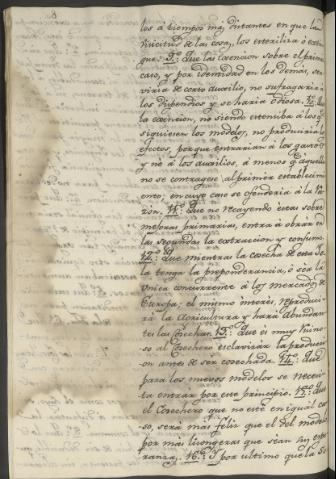 los á tiempos mas distantes en que la
vicitud de las cosas, los esterilisa ó extin
gue: 9º: Que la esencion sobre el primer
caso, y por identidad en los demas, ser
viria de corto auxilio, no sufragaria á
los dispendios y se haria odiosa. 10:
la esencion, no siendo estensiva á los q.
siguiesen los modelos, no produciria
efectos, porque entrarian á los gastos
y no á los auxilios, á menos q. aquella
no se contraiga al primer establecimi
ento; en cuyo caso se opondria á la Ra
zon. 11º: Que no recayendo esta sobre
mejoras primarias, entra á obrar en
las segundas la estraccion y consumo.
12º: Que mientras la cosecha de esta Is
la tenga la preponderancia, ó sea la
única concurrente á los mercados de
Europa; el mismo interés, reproduci
rá la Agricultura y hará abundan
tes las Cosechas. 13º: Que es muy ruino
so al Cosechero esclavizar la produccion
antes de ser cosechada. 14º: Que
para los nuevos modelos se necesi
ta entrar por este principio. 15º: Que
el Cosechero que no esté en igual ca
so, será mas feliz que el del modelo
por mas lisongeras que sean sus espe
ranzas. 16º: Y por ultimo que la